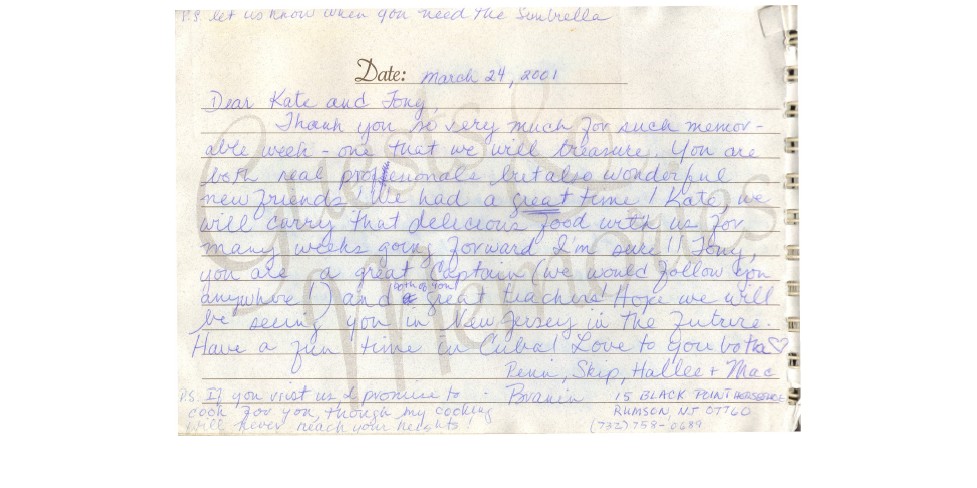 P.S. let us know when you need the Sunbrella
Date: March 24, 2001
Dear Kate and Tony,
Thank you so very much for such memor-
able week - one that we will treasure. You are
both real proffesionals but also wonderful
new friends! We had a great time! Kate, we
will carry that delecious food with us for
many weeks going forward I'm sure!! Tony,
you are a great Captain (we would follow you
anywhere!) and both of you great teachers! Hope we will
be seeing you in New Jersey in the future.
Have a fun time in Cuba! Love to you both ♡
Skip, Hallee + Mac
P.S. If you visit us, I promise to
cook for you, though my cooking
will never reach your heights!
15 BLACK POINT HORSESHOE
RUMSON NJ 07760
(732) 758-0689
Guests & Memories